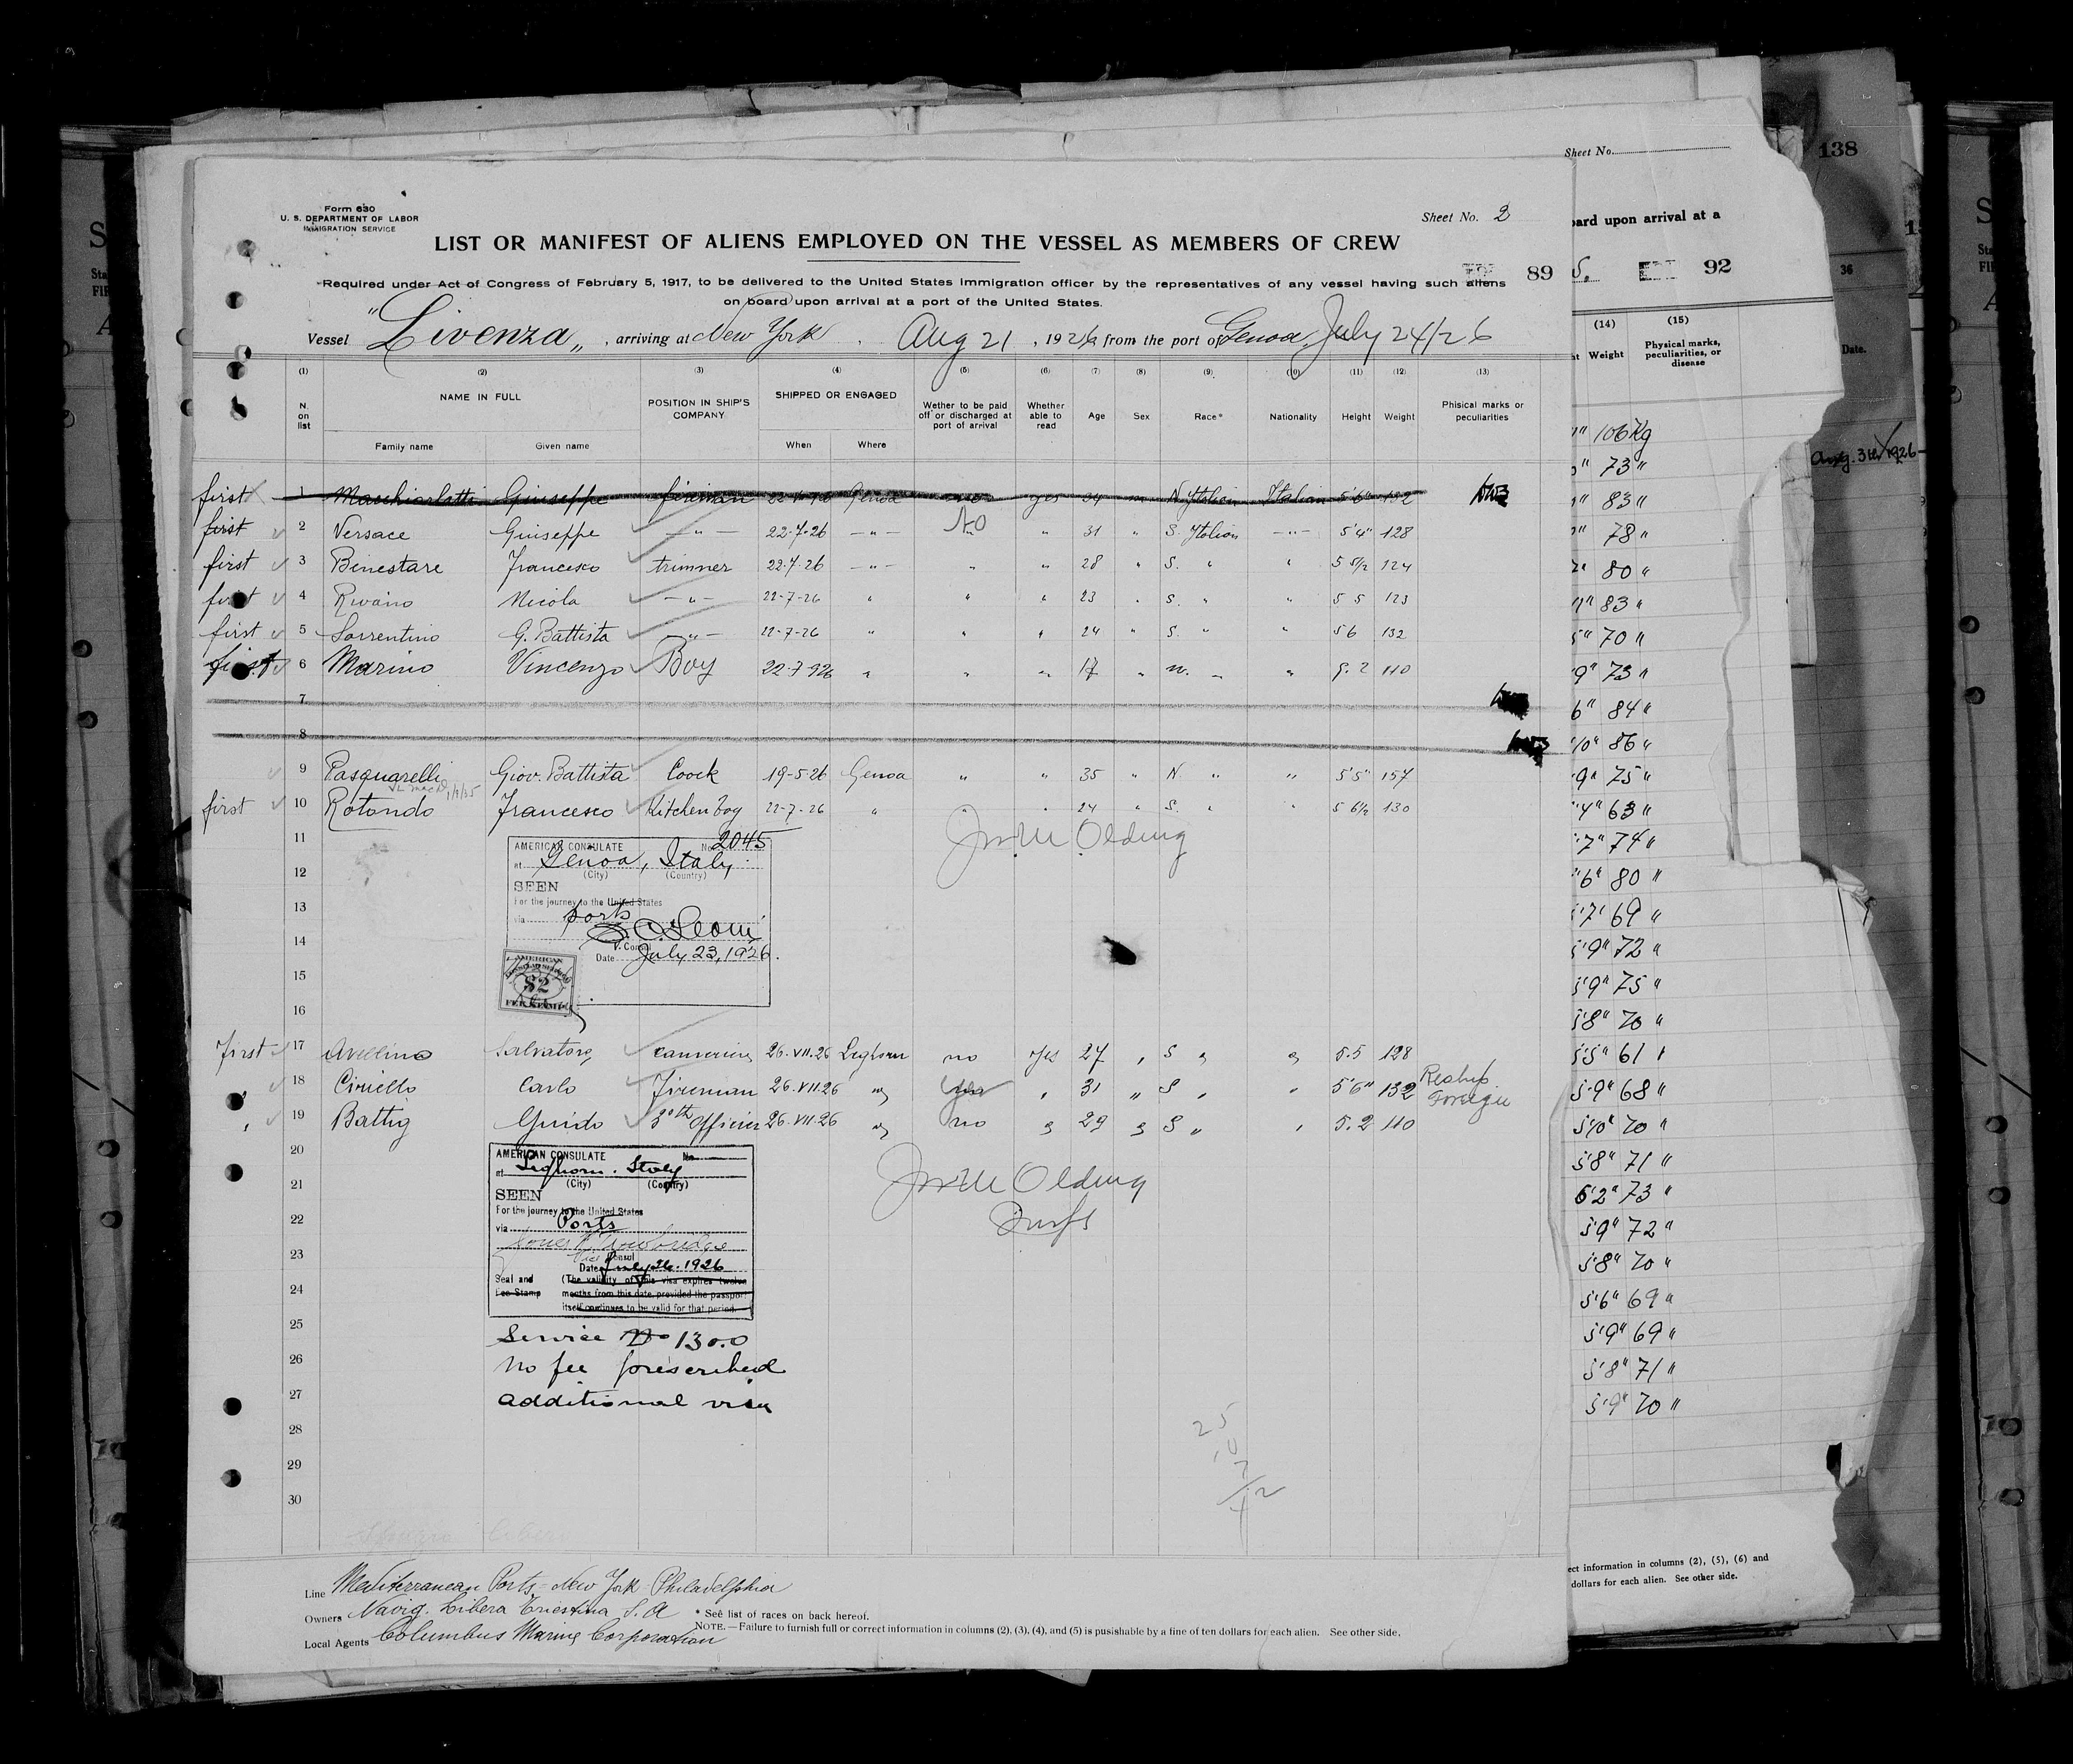 Form 630
U. S. DEPARTMENT OF LABOR
IMMIGRATION SERVICE
Sheet No. 2
LIST OR MANIFEST OF ALIENS EMPLOYED ON THE VESSEL AS MEMBERS OF CREW
89
Required under Act of Congress of February 5, 1917, to be delivered to the United States Immigration officer by the representatives of any vessel having such aliens
on board upon arrival at a port of the United States.
Vessel "Livenza", arriving at New York. Aug 21, 1926 from the port of Genoa, July 24/26
(1) (2) (3) (4) (5) (6) (7) (8) (9) (10) (11) (12) (13)
N. on list NAME IN FULL Family name Given name POSITION IN SHIP'S COMPANY SHIPPED OR ENGAGED When Where Wether to be paid off or discharged at port of arrival Whether able to read Age Sex Race* Nationality Height Weight Phisical marks or peculiarities
first 1 Giuseppe fireman Genoa no yes 34 m N. Italian Italian 5'6" 132
first 2 Versace Giuseppe - " - 22-7-26 - " - No " 31 " S. Italian - " - 5'4" 128
first 3 Binestare Francesco trimner 22-7-26 - " - " " 28 " S. " " 5 5/2 124
first 4 Nicola - " - 22-7-26 " " " 23 " S. " " 5 5 123
first 5 Sorrentino G. Battista - " - 22-7-26 " " " 24 " S. " " 5 6 132
first 6 Marino Vincenzo Boy 22-7-926 " " " 17 " n. " " 5.2 110
7
8
9 Pasquarelli Giov. Battista Coock 19-5-26 Genoa " " 35 " N. " " 5'5" 157
first 10 Rotondo Francesco Kitchen boy 22-7-26 " " " 24 " S. " " 5 6/2 130
11
AMERICAN CONSULATE No. 2045
at Genoa, Italy
(City) (Country)
12
SEEN
For the journey to the United States
13
via ports
14
V. Consul
Date July 23, 1926.
15
AMERICAN
$2
FEE STAMP
16
First 17 Avellino Salvatore 26.VII.26 Leghorn no yes 27 " S " " 5.5 128
" 18 Ciriello Carlo Fireman 26.VII.26 " yes " 31 " S " " 5'6" 132 Reship Foreign
" 19 Battig Guido 3°th Officier 26.VII.26 " no " 29 " S " " 5.2 110
20
AMERICAN CONSULATE No.
at Leghorn. Italy
(City) (Country)
21
SEEN
For the journey to the United States
22
via Ports
23
Vice Consul
Date July 26. 1926
Seal and (The validity of this visa expires twelve
24
Fee Stamp months from this date provided the passport
itself continues to be valid for that period.
25
Service No 1300
26
No fee prescribed
27
additional visa
28
29
30
25
Line Mediterranean Ports - New York - Philadelphia
Owners Navig. Libera Triestina S. A * See list of races on back hereof.
Local Agents Columbus Marine Corporation NOTE.—Failure to furnish full or correct information in columns (2), (3), (4), and (5) is pusishable by a fine of ten dollars for each alien. See other side.
Sheet No.
138
oard upon arrival at a
S. 92
36
(14) (15)
Weight Physical marks, peculiarities, or disease
Date.
106 Kg
73 "
83 "
78 "
80 "
83 "
70 "
9" 73 "
6" 84 "
10" 86 "
9" 75 "
4" 63 "
7" 74 "
6" 80 "
5'7" 69 "
5'9" 72 "
5'9" 75 "
5'8" 70 "
5'5" 61 "
5'9" 68 "
5'10" 70 "
5'8" 71 "
6'2" 73 "
5'9" 72 "
5'8" 70 "
5'6" 69 "
5'9" 69 "
5'8" 71 "
5'9" 70 "
ect information in columns (2), (5), (6) and
dollars for each alien. See other side.